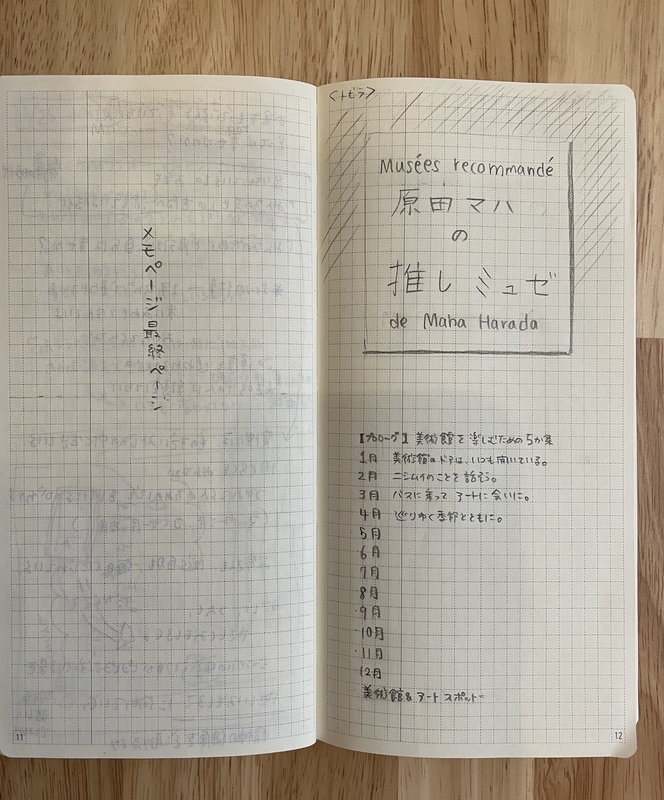 メモページ最終ページ
11
<トビラ>
Musées recommandé
原田マハ
の
推しミュゼ
de Maha Harada
【プロローグ】美術館を楽しむための5か条
1月 美術館のドアは、いつも開いている。
2月 ニシムイのことを話そう。
3月 バスに乗って アートに会いに。
4月 巡りゆく季節とともに。
5月
6月
7月
8月
9月
10月
11月
12月
美術館&アートスポット
12